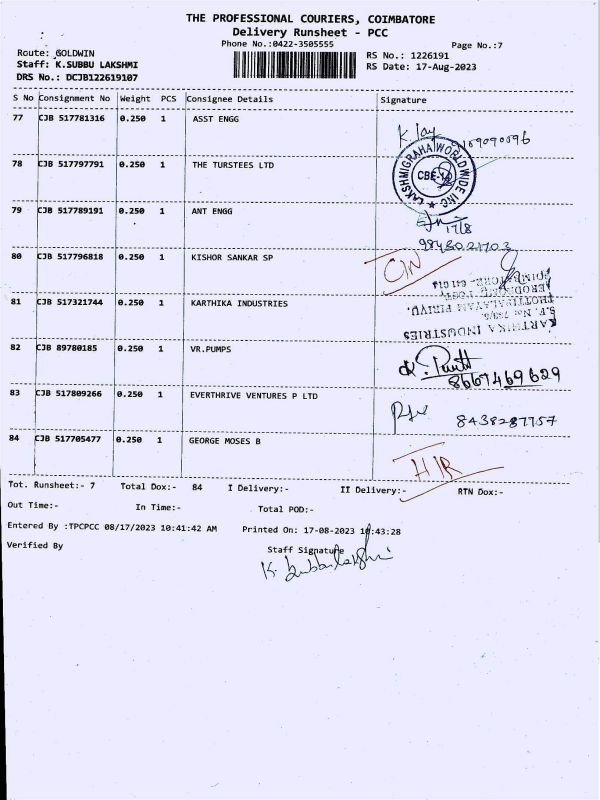 THE PROFESSIONAL COURIERS, COIMBATORE
Delivery Runsheet - PCC
Phone No.:0422-3505555
Page No.:7
Route: GOLDWIN
RS No.: 1226191
Staff: K.SUBBU LAKSHMI
RS Date: 17-Aug-2023
DRS No.: DCJB122619107
S No Consignment No Weight PCS Consignee Details Signature
77 CJB 517781316 0.250 1 ASST ENGG
78 CJB 517797791 0.250 1 THE TURSTEES LTD
LAKSHMIGRAHA WORLDWIDE INC
79 CJB 517789191 0.250 1 ANT ENGG
17/8
80 CJB 517796818 0.250 1 KISHOR SANKAR SP
81 CJB 517321744 0.250 1 KARTHIKA INDUSTRIES
KARTHIKA INDUSTRIES
82 CJB 89780185 0.250 1 VR.PUMPS
8667469629
83 CJB 517809266 0.250 1 EVERTHRIVE VENTURES P LTD
8438287757
84 CJB 517705477 0.250 1 GEORGE MOSES B
Tot. Runsheet:- 7 Total Dox:- 84 I Delivery:- II Delivery:- RTN Dox:-
Out Time:- In Time:- Total POD:-
Entered By :TPCPCC 08/17/2023 10:41:42 AM Printed On: 17-08-2023 10:43:28
Verified By Staff Signature
K. Subbulakshmi